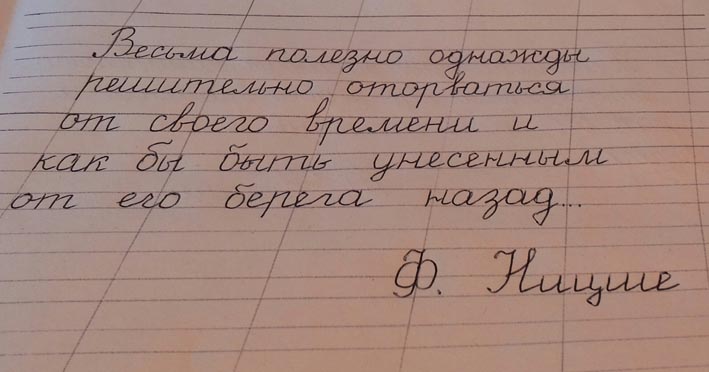 Весьма полезно однажды
решительно оторваться
от своего времени и
как бы быть унесенным
от его берега назад...
Ф. Ницше